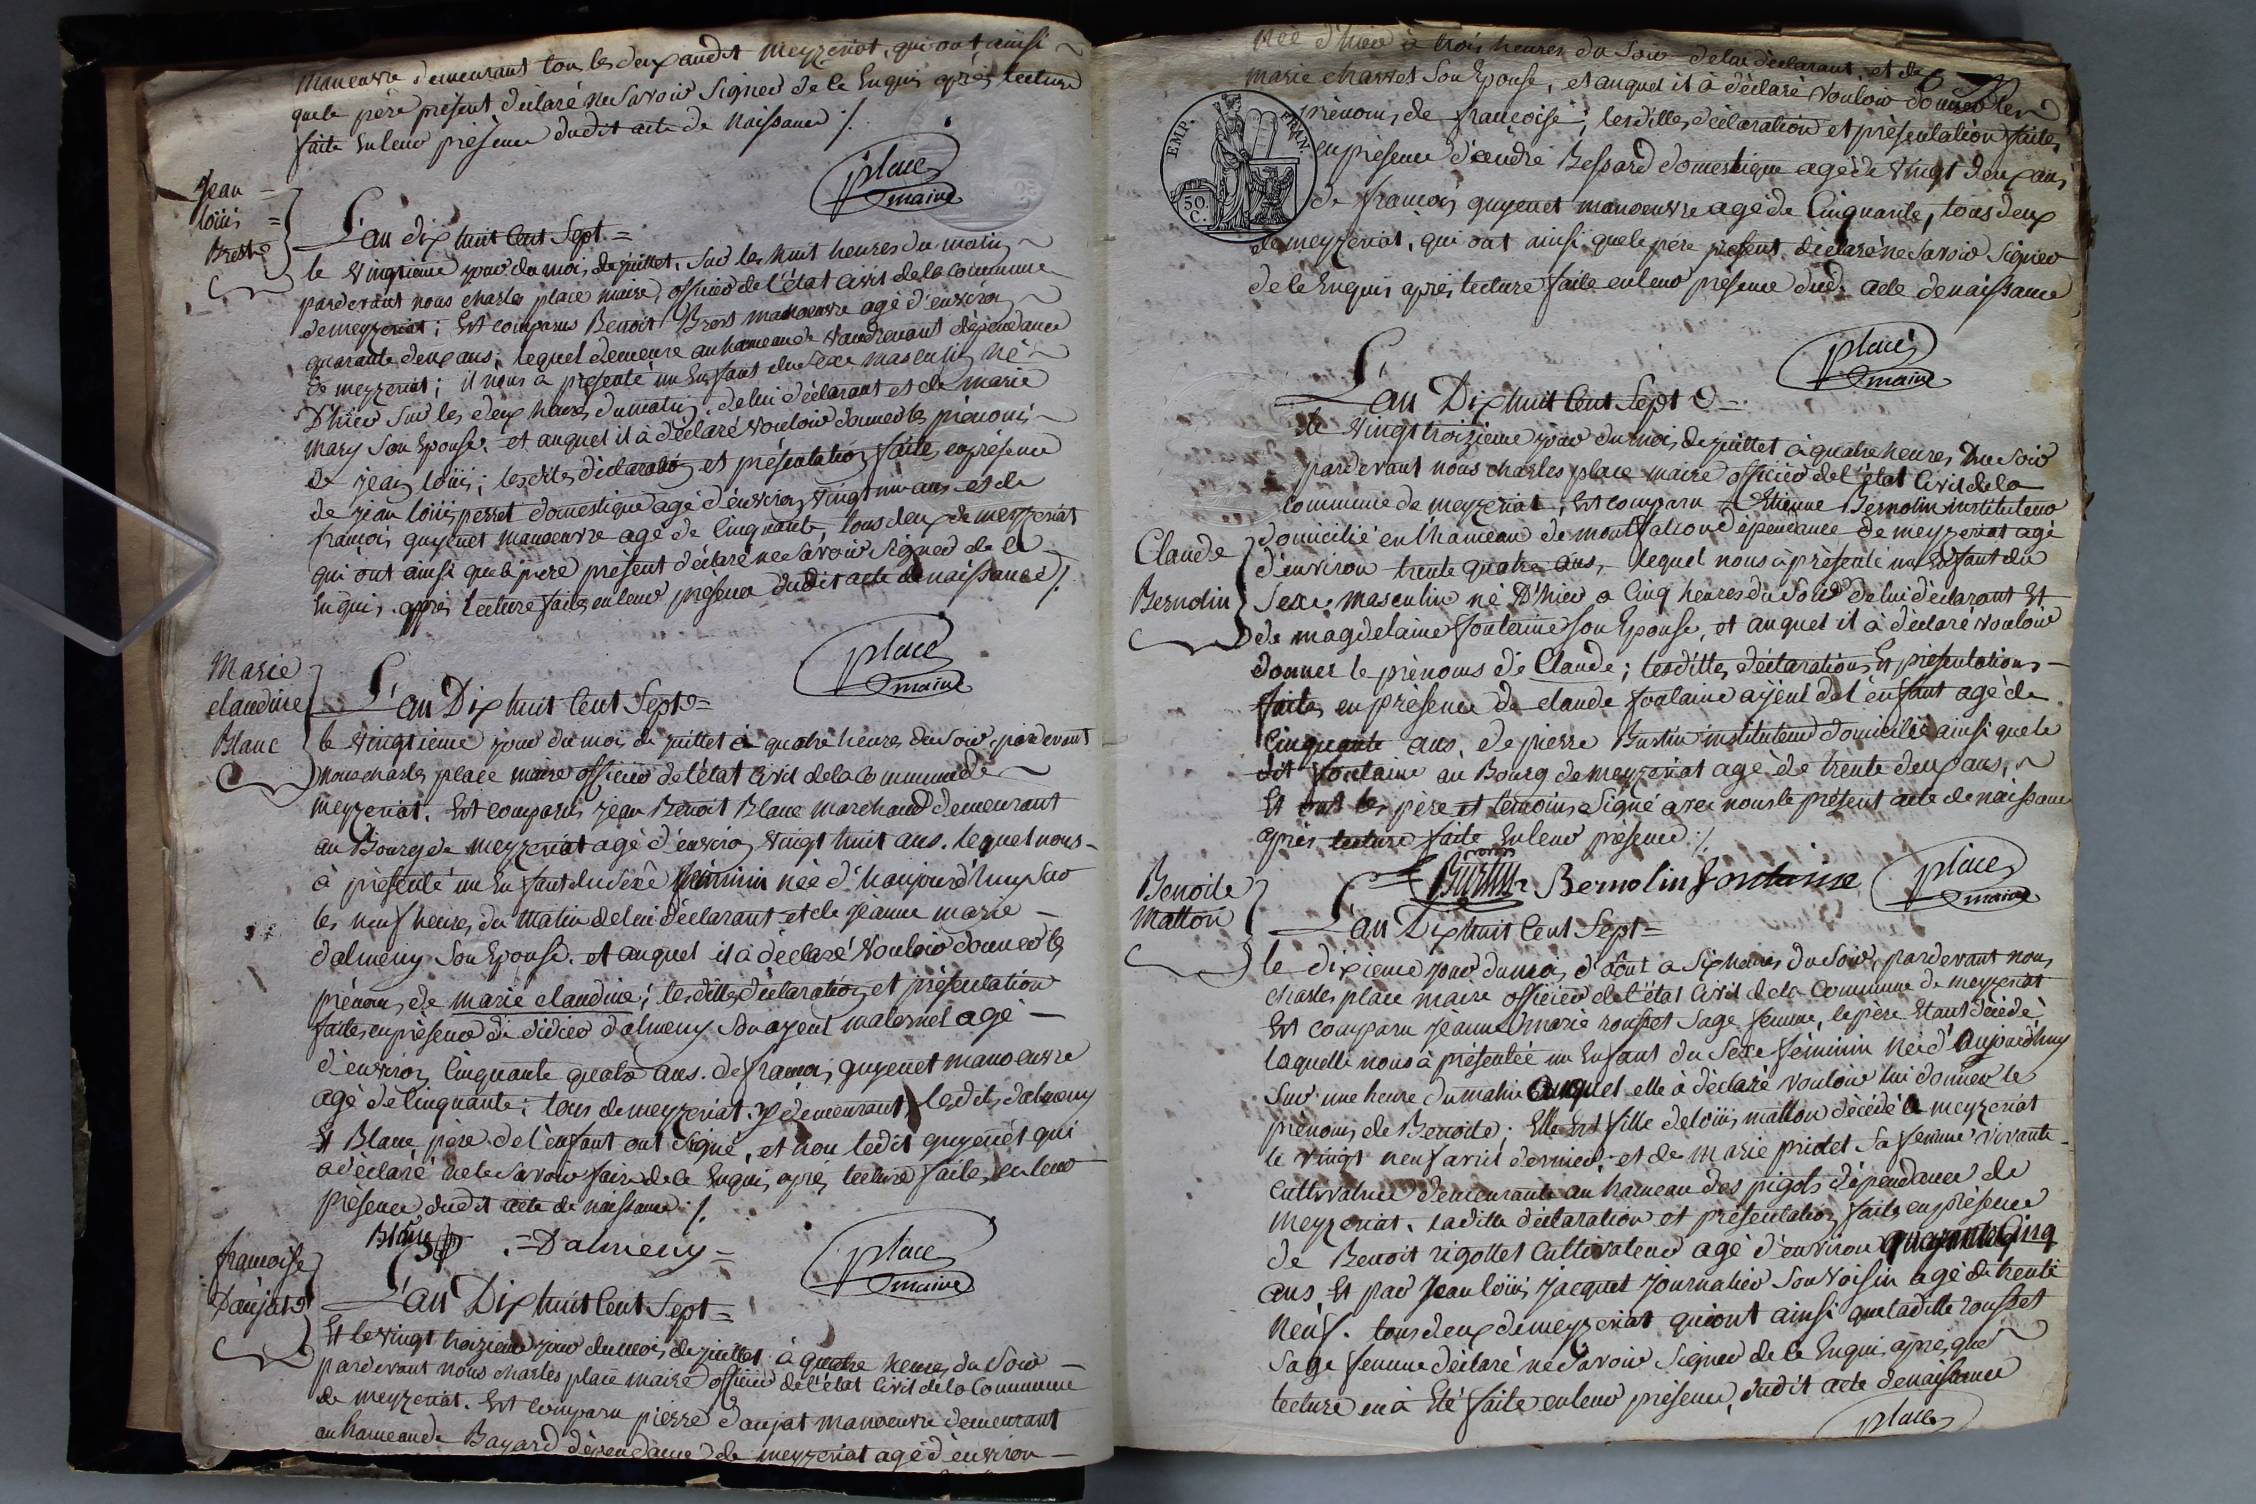 manoeuvre demeurant tous les deux audit meyzeriat, qui ont ainsi
que le père présent déclaré ne Savoir Signer de ce Enquis après lecture
faite En leur présence dudit acte de Naissance ./.
place
maire
Jean
loüis
Brest
L'an dix huit Cent Sept =
le Vingtieme jour du mois de juillet, Sur les huit heures du matin
pardevant nous charles place maire, officier de l'état Civil de la commune
de meyzeriat; Est comparus Benoit Brest manoeuvre agé d'environ
quarante deux ans; lequel demeure au hameau de Vaudrenant dépendance
de meyzeriat; il nous a présenté un Enfant du Sexe masculin né
D'hier Sur les deux heures du matin, de lui déclarant et de marie
mary Son Epouse. et auquel il à déclaré vouloir donner les prénoms
de jean loüis; lesdites déclaration et présentation faites en présence
de jean loüis perret domestique agé d'environ vingt un ans et de
françois guyenet manoeuvre agé de Cinquante, tous deux de meyzeriat
qui ont ainsi que le père présent déclaré ne Savoir Signer de ce
Enquis. après lecture faite en leur présence dudit acte de naissance ./.
place
maire
Marie
claudine
Blanc
L'an Dix huit Cent Sept =
le vingtieme jour du mois de juillet à quatre heures du Soir, pardevant
nous charles place maire officier de l'état Civil de la Commune de
meyzeriat. Est comparus jean Benoit Blanc marchand demeurant
au Bourg de meyzeriat agé d'environ vingt huit ans. lequel nous
à présenté un Enfant du Sexe féminin née d'haujourd'huy Sur
les neuf heures du matin de lui déclarant et de jeanne marie
dalmeny Son Epouse. et auquel il à déclaré vouloir donner les
prénoms de marie claudine; lesdittes déclaration et présentation
faites en présence de didier dalmeny Son ayeul maternel agé
d'environ Cinquante quatre ans. de françois guyenet manoeuvre
agé de Cinquante; tous de meyzeriat y demeurant, lesdits dalmeny
Et Blanc père de l'enfant ont Signé, et non ledit guyenet qui
a déclaré ne le Savoir faire de ce Enquis, après lecture faite en leur
présence dudit acte de naissance ./.
Blanc =Dalmeny= place
maire
françoise
Daujat
L'an Dix huit Cent Sept =
Et le vingt troizieme jour du mois de juillet à quatre heures du Soir
pardevant nous charles place maire officier de l'état Civil de la Commune
de meyzeriat. Est comparu pierre daujat manoeuvre demeurant
au hameau de Bayard dépendance de meyzeriat agé d'environ
née d'hier à trois heures du Soir de lui déclarant, et de
marie charvet Son Epouse, et auquel il à déclaré vouloir donner les
prénoms de françoise; lesdittes déclaration et présentation faites
EMP. FRAN.
50. C.
en présence d'andré Bessard domestique agé de vingt deux ans
de françois guyenet manoeuvre agé de Cinquante, tous deux
de meyzeriat, qui ont ainsi que le père présent déclaré ne Savoir Signer
de ce Enquis après lecture faite en leur présence dud. acte de naissance
place
maire
L'an Dix huit Cent Sept =
le Vingt troizieme jour du mois de juillet à quatre heures Du Soir
pardevant nous charles place maire officier de l'état Civil de la
Commune de meyzeriat, Est comparu Etienne Bernolin instituteur
domicilié en l'hameau de montfalcon dépendance de meyzeriat agé
Claude
Bernolin
d'environ trente quatre ans, lequel nous à présenté un Enfant du
Sexe masculin né D'hier a Cinq heures du Soir de lui déclarant Et
de magdelaine fontaine Son Epouse, et auquel il à déclaré vouloir
donner le prénoms de Claude; lesdittes déclarations Et présentations
faites en présence de claude fontaine ayeul de l'enfant agé de
Cinquante ans, de pierre Burtin instituteur domicilié ainsi que le
dit fontaine au Bourg de meyzeriat agé de trente deux ans,
Et ont les père et temoins Signé avec nous le présent acte de naissance
après lecture faite En leur présence ./.
Burtin Bernolin fontaine place
maire
Benoite
Matton
L'an Dix huit Cent Sept =
le dixieme jour du mois d'aôut a Six heures du Soir, pardevant nous
charles place maire officier de l'état Civil de la Commune de meyzeriat
Est comparu jeanne marie rousset Sage femme, le père Etant décédé
laquelle nous à présentée un Enfant du Sexe féminin née d'aujourd'huy
Sur une heure du matin auquel elle à déclaré vouloir lui donner le
prénoms de Benoite; Elle est fille de loüis matton décédé à meyzeriat
le vingt neuf avril dernier, et de marie pridet Sa femme vivante
Cultivatrice demeurante au hameau des pigots dépendance de
meyzeriat. laditte déclaration et présentation faite en présence
de Benoit rigottet Cultivateur agé d'environ quarante Cinq
ans Et par jean loüis jacquet journalier Son voisin agé de trente
neuf. tous deux de meyzeriat qui ont ainsi que laditte rousset
Sage femme déclaré ne Savoir Signer de ce Enquis après que
lecture en à Eté faite en leur présence, dudit acte de naissance
place